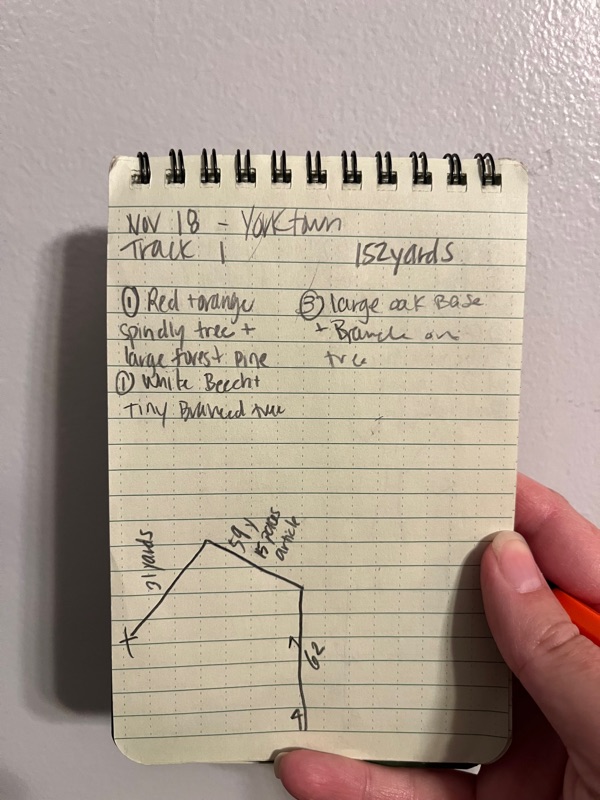 Nov 18 - Yorktown
Track 1
152yards
① Red + orange
spindly tree +
large forest pine
① White Beech +
Tiny tree
③ large oak Base
+ Branch on
tree
31 yards
59 y
15 yards
article
7
62
4